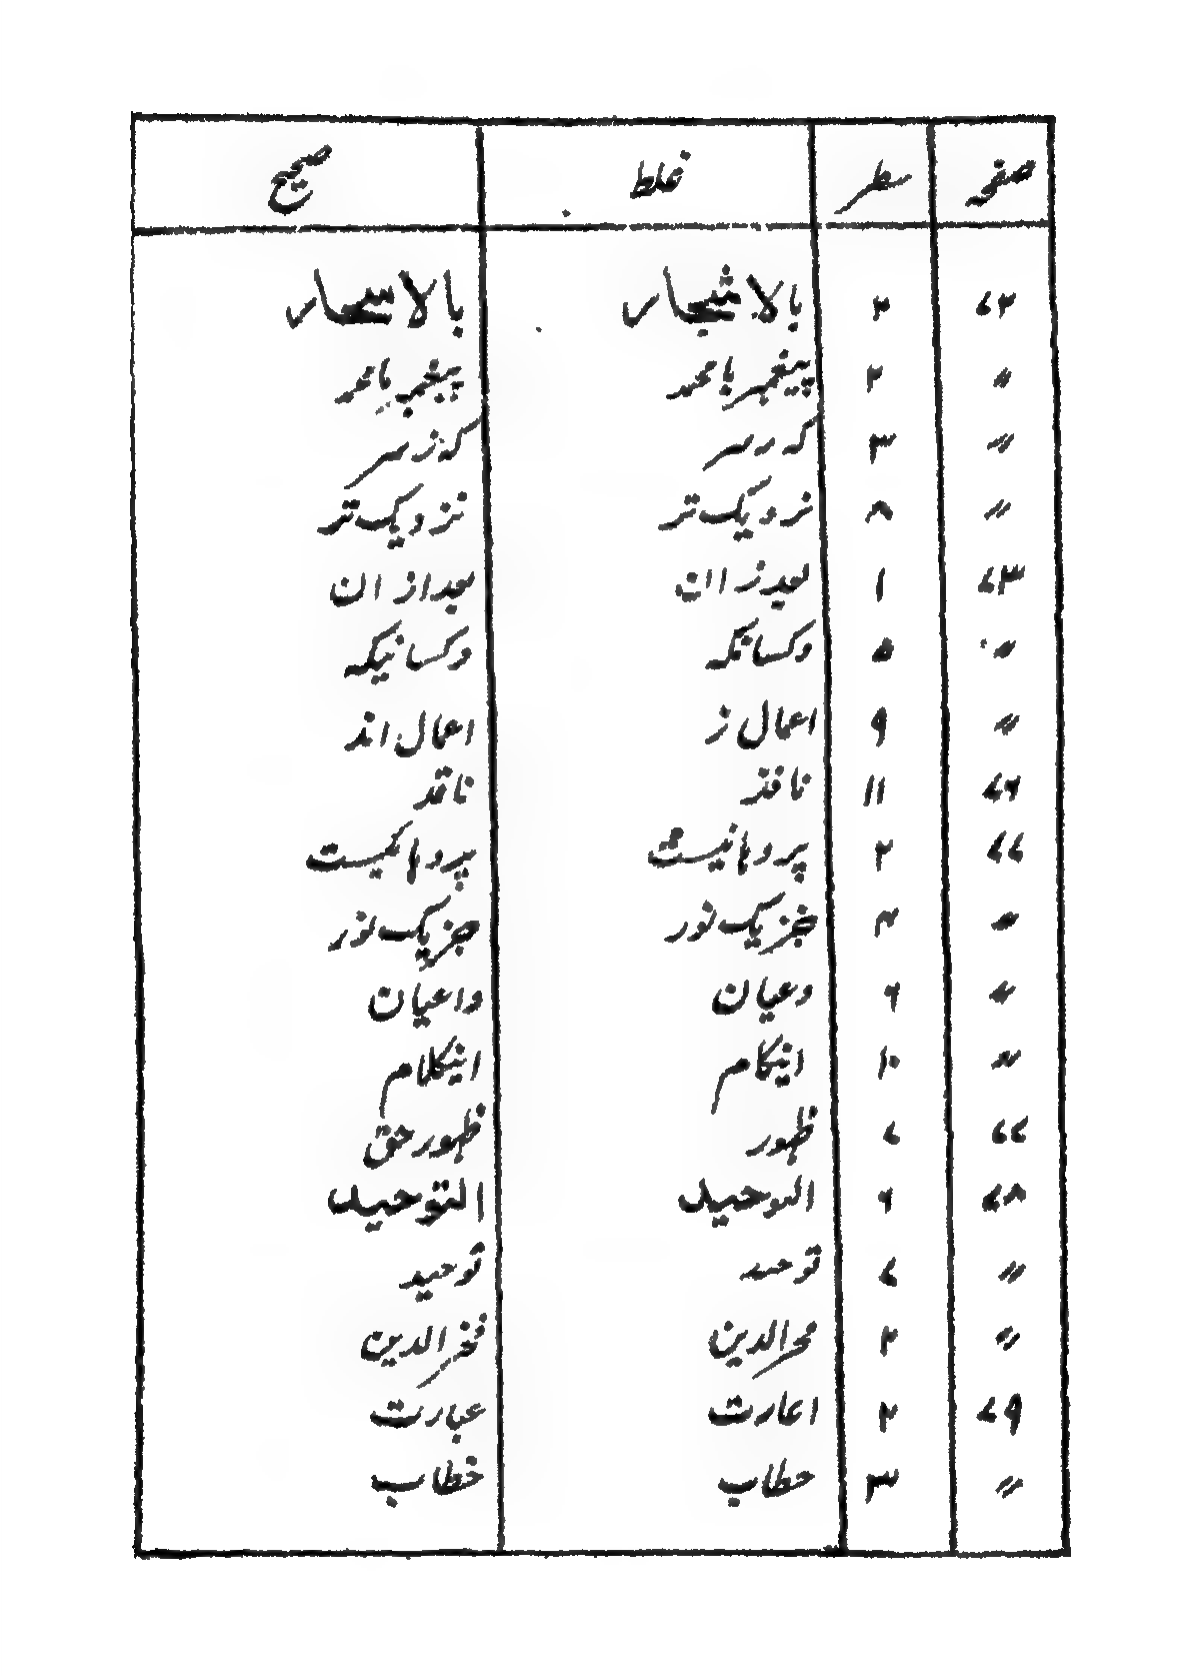 صفحہ سطر غلط صحیح
۷۲ ۲ بالاشجار بالاسحار
〃 ۲ پیغمبر با محمد پیغمبر با محمد
〃 ۳ کہ رسر کہ زسر
〃 ۸ نرویک تر نزدیک تر
۷۳ ۱ بعدز اان بعد از ان
〃 ۵ وکسانکہ وکسانیکہ
〃 ۹ اعمال ز اعمال اند
۷۶ ۱۱ نافذ ناقد
۷۷ ۲ پروانیست
〃 ۴ خبزیک نور جزیک نور
〃 ۶ وعیان واعیان
〃 ۱۰ اینکام اینکلام
۷۷ ۷ ظہور ظہور حق
۷۸ ۶ التوحید التوحید
〃 ۷ توحد توحید
〃 ۲ محر الدین فخر الدین
۷۹ ۲ اعارت عبارت
〃 ۳ حطاب خطاب